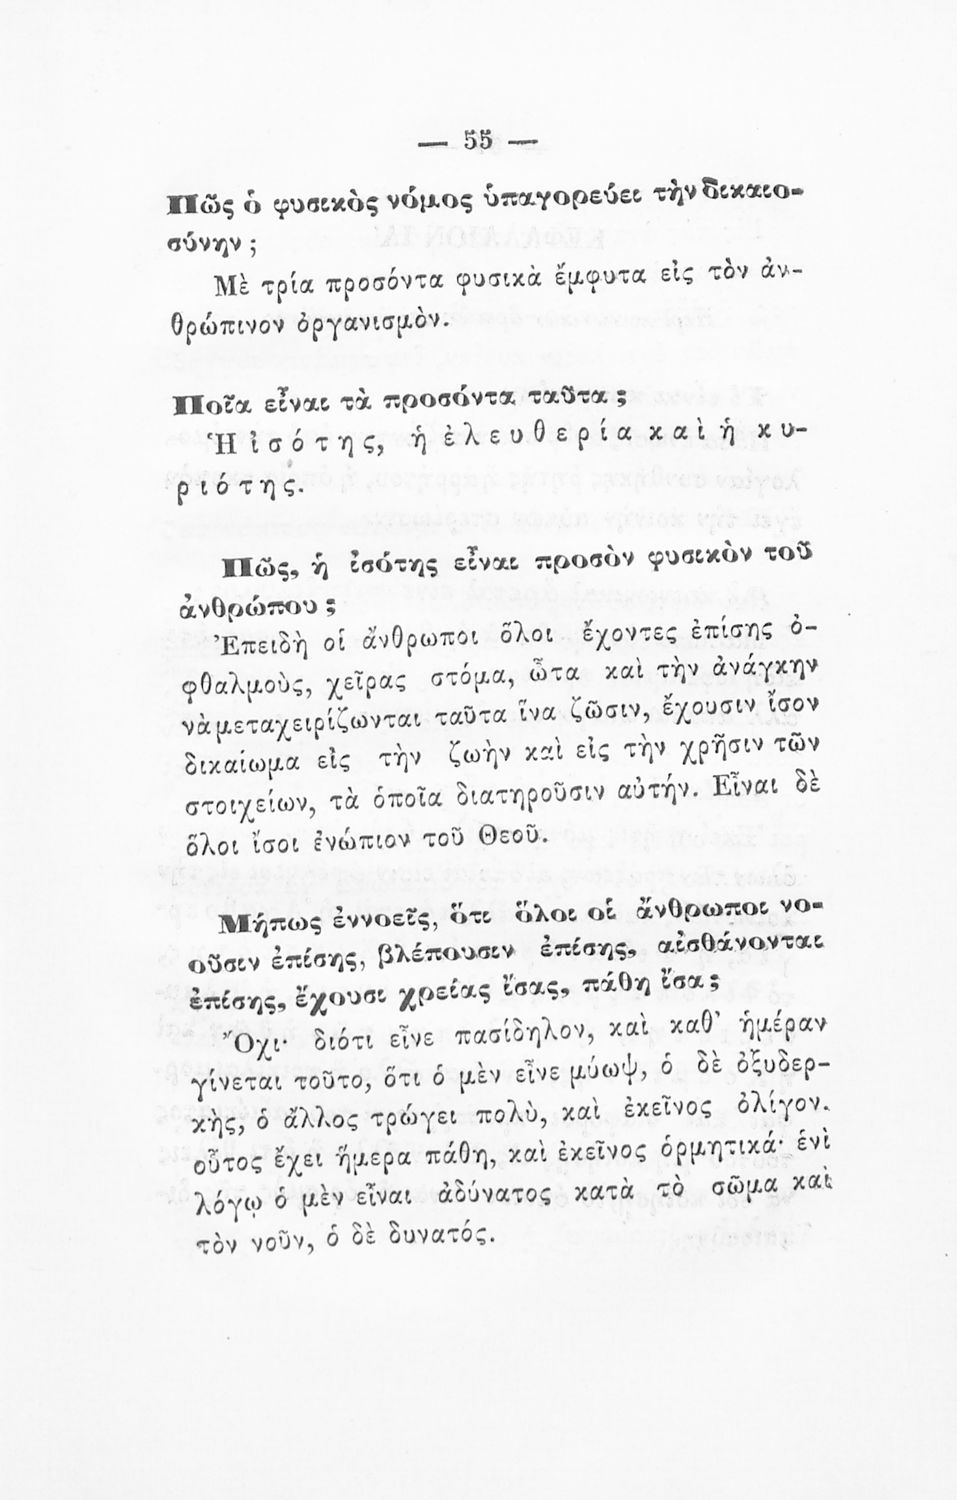 — 55 —
Πῶς ὁ φυσικὸς νόμος ὑπαγορεύει τὴν δικαιο-
σύνην ;
Μὲ τρία προσόντα φυσικὰ ἔμφυτα εἰς τὸν ἀν-
θρώπινον ὀργανισμὸν.
Ποῖα εἶναι τὰ προσόντα ταῦτα ;
Ἡ ἰσότης, ἡ ἐλευθερία καὶ ἡ κυ-
ριότης.
Πῶς, ἡ ἰσότης εἶναι προσὸν φυσικὸν τοῦ
ἀνθρώπου ;
Ἐπειδὴ οἱ ἄνθρωποι ὅλοι ἔχοντες ἐπίσης ὀ-
φθαλμοὺς, χεῖρας στόμα, ὦτα καὶ τὴν ἀνάγκην
νὰ μεταχειρίζωνται ταῦτα ἵνα ζῶσιν, ἔχουσιν ἴσον
δικαίωμα εἰς τὴν ζωὴν καὶ εἰς τὴν χρῆσιν τῶν
στοιχείων, τὰ ὁποῖα διατηροῦσιν αὐτήν. Εἶναι δὲ
ὅλοι ἴσοι ἐνώπιον τοῦ Θεοῦ.
Μήπως ἐννοεῖς, ὅτι ὅλοι οἱ ἄνθρωποι νο-
οῦσιν ἐπίσης, βλέπουσιν ἐπίσης, αἰσθάνονται
ἐπίσης, ἔχουσι χρείας ἴσας, πάθη ἴσα ;
Ὄχι· διότι εἶνε πασίδηλον, καὶ καθ' ἡμέραν
γίνεται τοῦτο, ὅτι ὁ μὲν εἶνε μύωψ, ὁ δὲ ὀξυδερ-
κὴς, ὁ ἄλλος τρώγει πολὺ, καὶ ἐκεῖνος ὀλίγον.
οὗτος ἔχει ἥμερα πάθη, καὶ ἐκεῖνος ὁρμητικά· ἑνὶ
λόγῳ ὁ μὲν εἶναι ἀδύνατος κατὰ τὸ σῶμα καὶ
τὸν νοῦν, ὁ δὲ δυνατός.